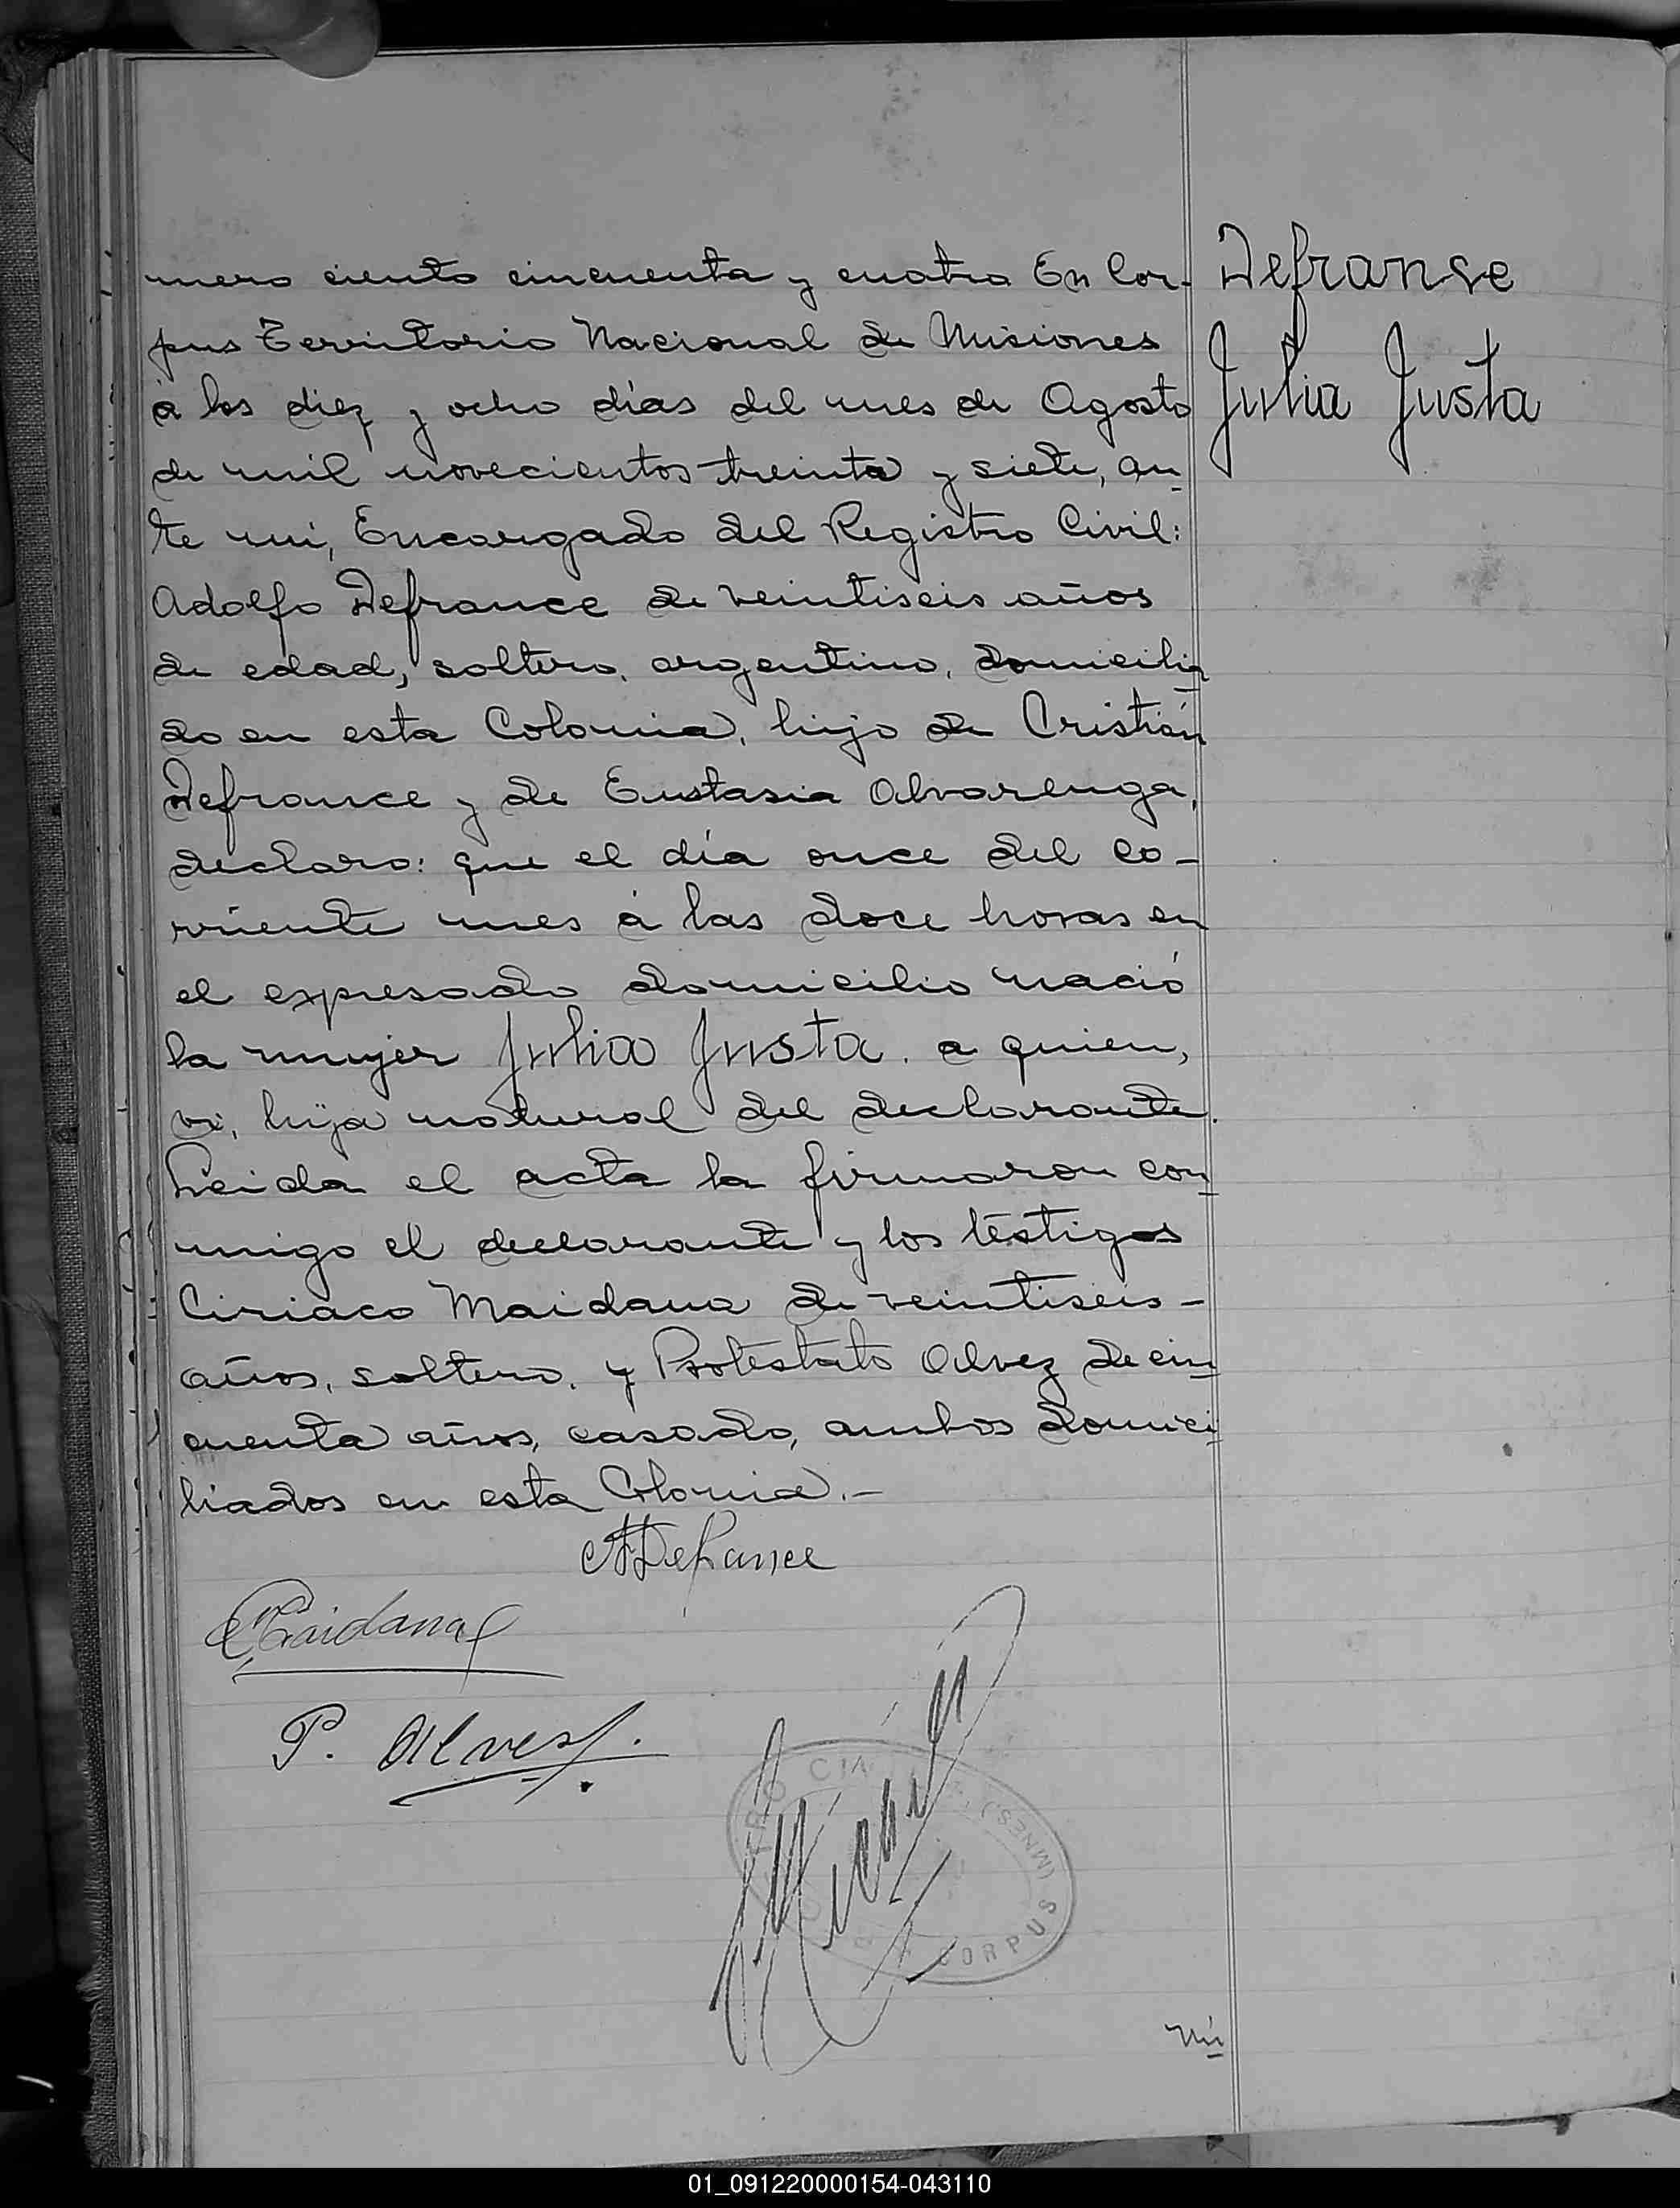 mero ciento cincuenta y cuatro En Cor-
pus Territorio Nacional de Misiones
á los diez y ocho días del mes de Agosto
de mil novecientos treinta y siete, an-
te mi, Encargado del Registro Civil:
Adolfo Defrance de veintiseis años
de edad, soltero, argentino, domicilia-
do en esta Colonia, hijo de Cristián
Defrance y de Eustasia Alvarenga,
declaro: que el día once del co-
rriente mes á las doce horas en
el expresado domicilio nació
la mujer Julia Justa. a quien,
vi, hija natural del declarante.
Leida el acta la firmaron con-
migo el declarante y los testigos
Ciriaco Maidana de veintiseis -
años, soltero, y Protestato Alvez de cin-
cuenta años, casado, ambos domici-
liados en esta Colonia.-
Defranse
Julia Justa
A Defrance
C Maidana
P. Alvez.
CORPUS (MNES.)
Nú-
01_091220000154-043110